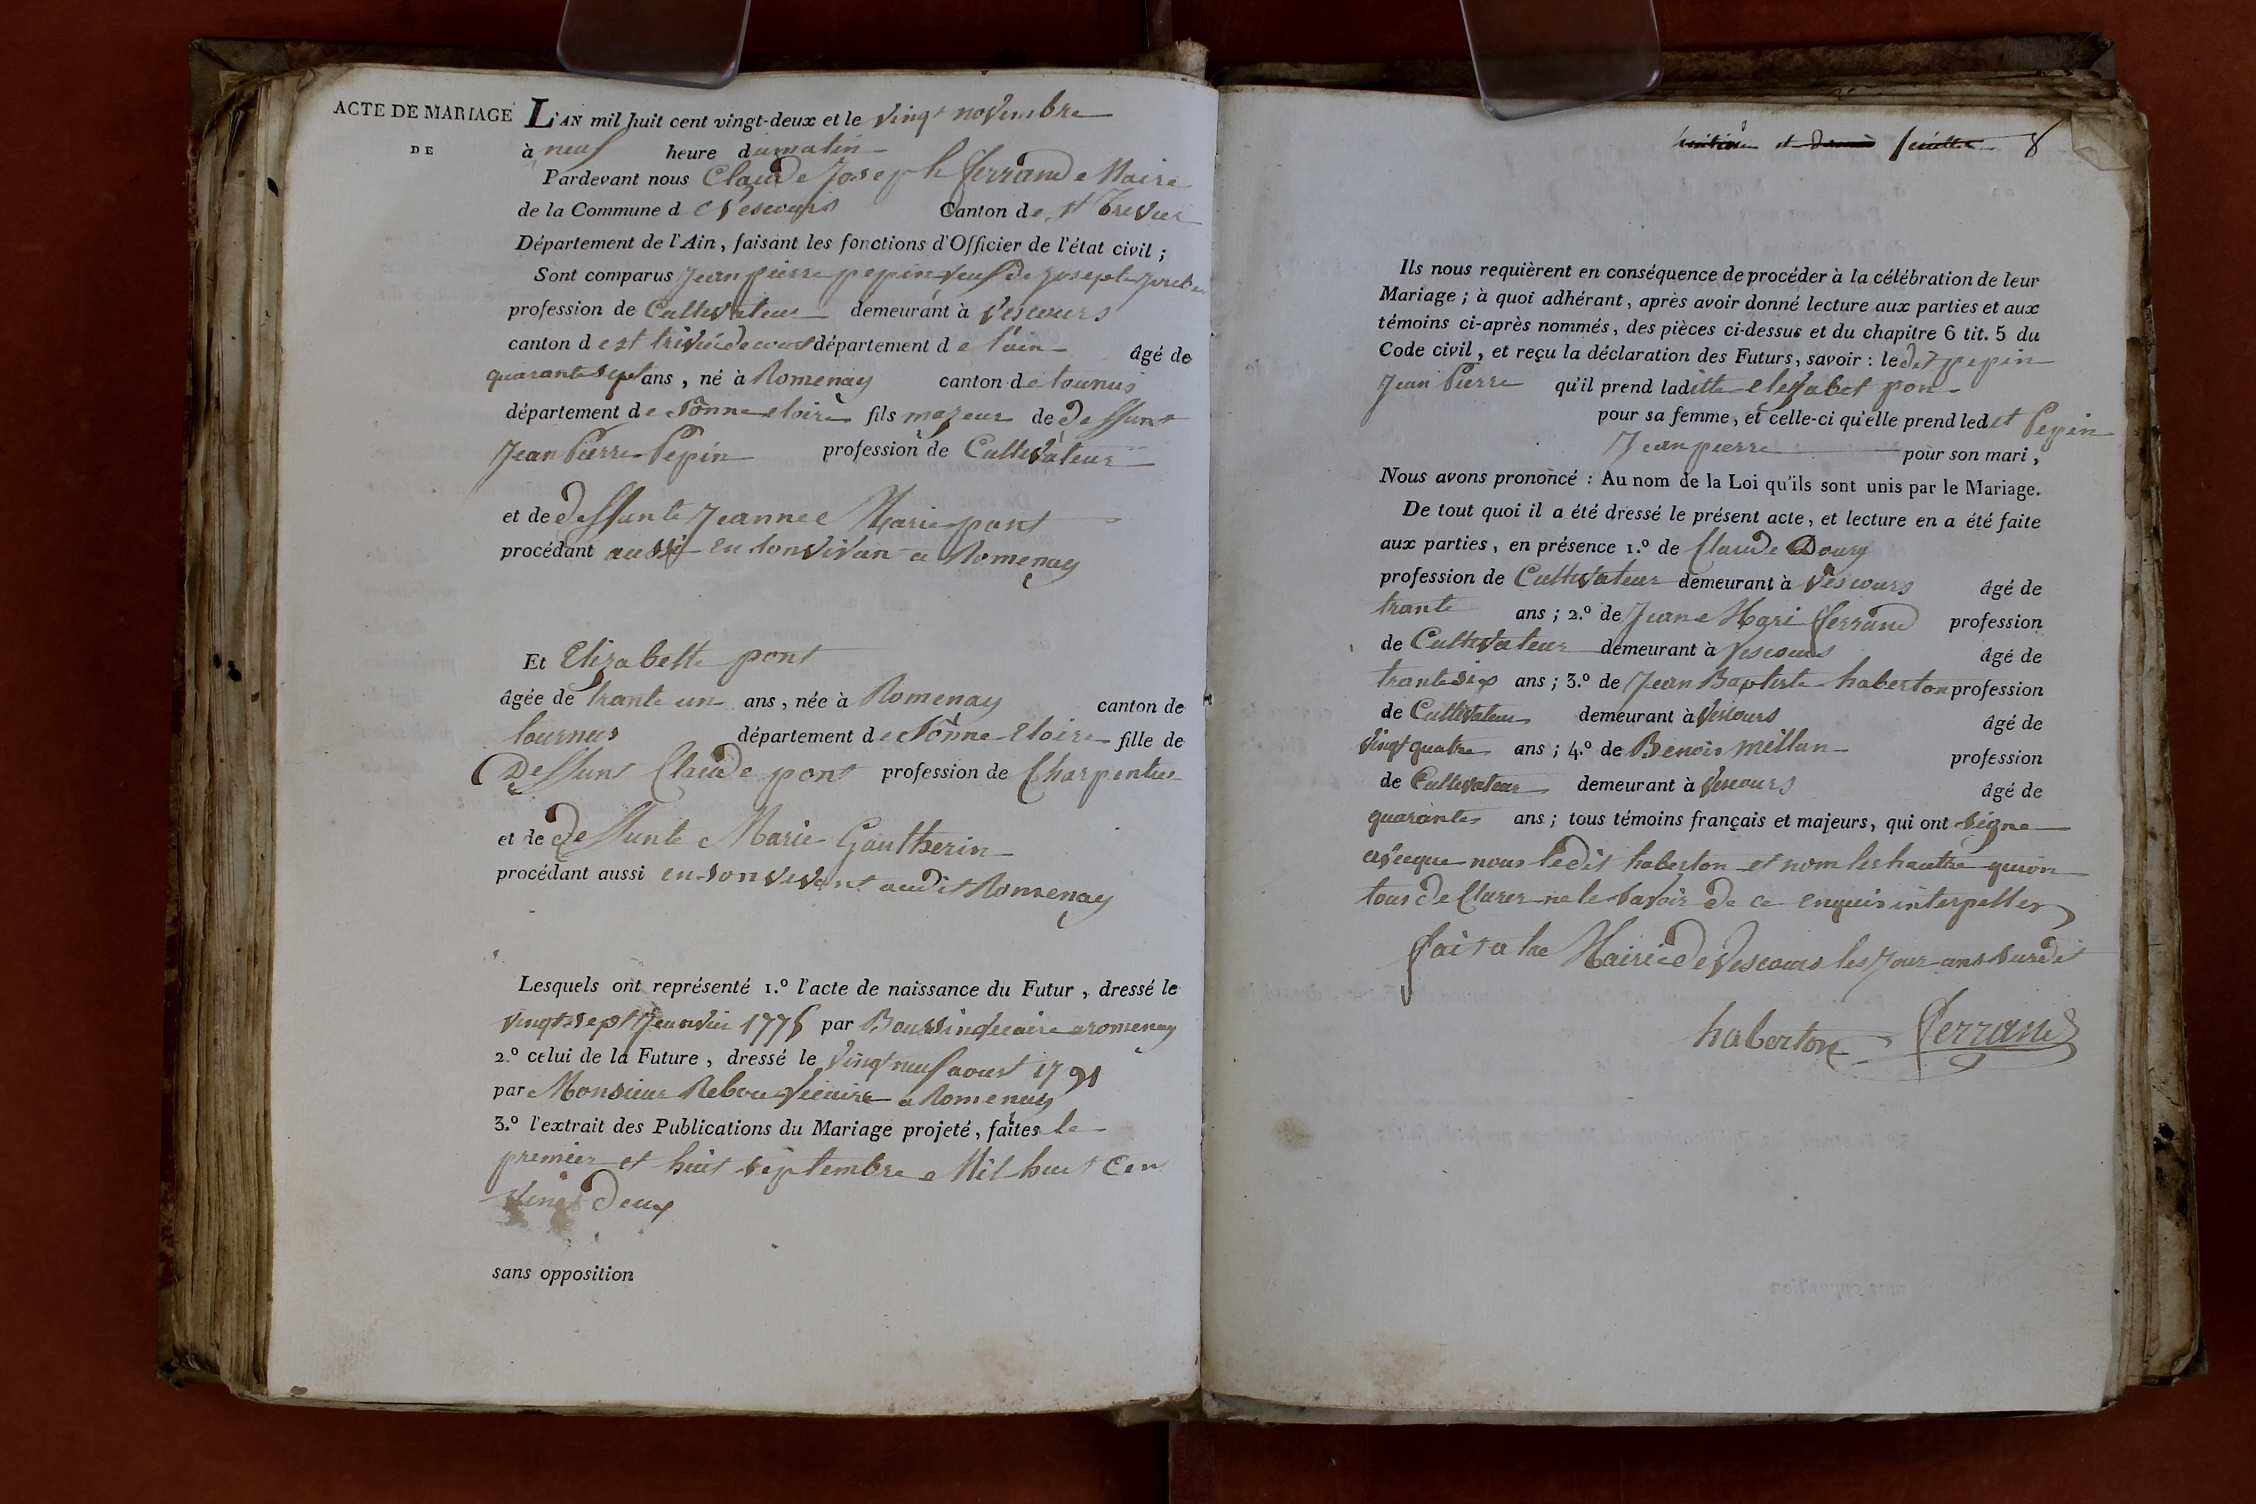 ACTE DE MARIAGE L'AN mil huit cent vingt-deux et le vingt novembre
DE à neuf heure du matin
Pardevant nous Claude Joseph ferrand Maire
de la Commune de Vescours Canton de st Trevier
Département de l'Ain, faisant les fonctions d'Officier de l'état civil;
Sont comparus Jean pierre pepin veuf de Josepte
profession de Cultivateur demeurant à Vescours
canton de st trivié de cours département de l'ain âgé de
quarante sept ans, né à Romenay canton de tournus
département de Sônne eloire fils majeur de deffunt
Jean Pierre Pepin profession de Cultivateur
et de deffunte Jeanne Marie pont
procédant aussi en son vivan a Romenay
Et Elizabette pont
âgée de trante un ans, née à Romenay canton de
tournus département de Sônne eloire fille de
Deffunt Claude pont profession de Charpentier
et de deffunte Marie Gautherin
procédant aussi en son vivant audit Romenay
Lesquels ont représenté 1.º l'acte de naissance du Futur, dressé le
vingt sept Janvier par aromenay
2.º celui de la Future, dressé le vingt neuf aoust 1791
par Monsieur Rebou vicaire a Romenay
3.º l'extrait des Publications du Mariage projeté, faites le
premier et huit septembre Mil huit Cen
vingt deux
sans opposition
feuillet 8
Ils nous requièrent en conséquence de procéder à la célébration de leur
Mariage; à quoi adhérant, après avoir donné lecture aux parties et aux
témoins ci-après nommés, des pièces ci-dessus et du chapitre 6 tit. 5 du
Code civil, et reçu la déclaration des Futurs, savoir: le dit pepin
Jean Pierre qu'il prend laditte elizabet pon
pour sa femme, et celle-ci qu'elle prend ledit Pepin
Jean pierre pour son mari,
Nous avons prononcé: Au nom de la Loi qu'ils sont unis par le Mariage.
De tout quoi il a été dressé le présent acte, et lecture en a été faite
aux parties, en présence 1.º de Claude Doury
profession de Cultivateur demeurant à Vescours âgé de
trante ans; 2.º de Jean Mari ferrand profession
de Cultivateur demeurant à Vescours âgé de
trante six ans; 3.º de Jean Baptiste haberton profession
de Cultivateur demeurant à Vescours âgé de
vingt quatre ans; 4.º de Benois millan profession
de Cultivateur demeurant à Vescours âgé de
quarante ans; tous témoins français et majeurs, qui ont signe
avecque nous ledit haberton et nom les hautre quion
tous declarer ne le savoir de ce enquis interpeller
fait a la Mairie de Vescours les Jour ans surdit
haberton ferrand